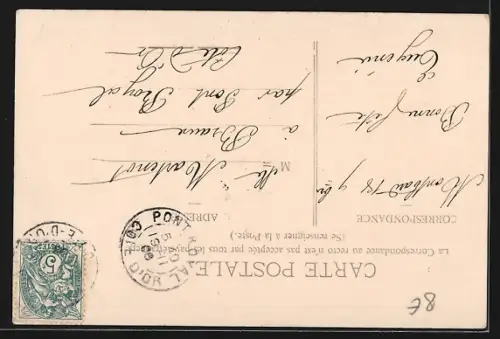 CARTE POSTALE
La Correspondance au recto n'est pas acceptée par tous les pays
(Se renseigner à la Poste.)
CORRESPONDANCE
ADRESSE
Montbard 18 9bre
Bonne fête
Eugénie
M
elle Martenot
à Braux
par Pont Royal
Côte d'Or
PONT-ROYAL
CÔTE-D'OR
5
8€